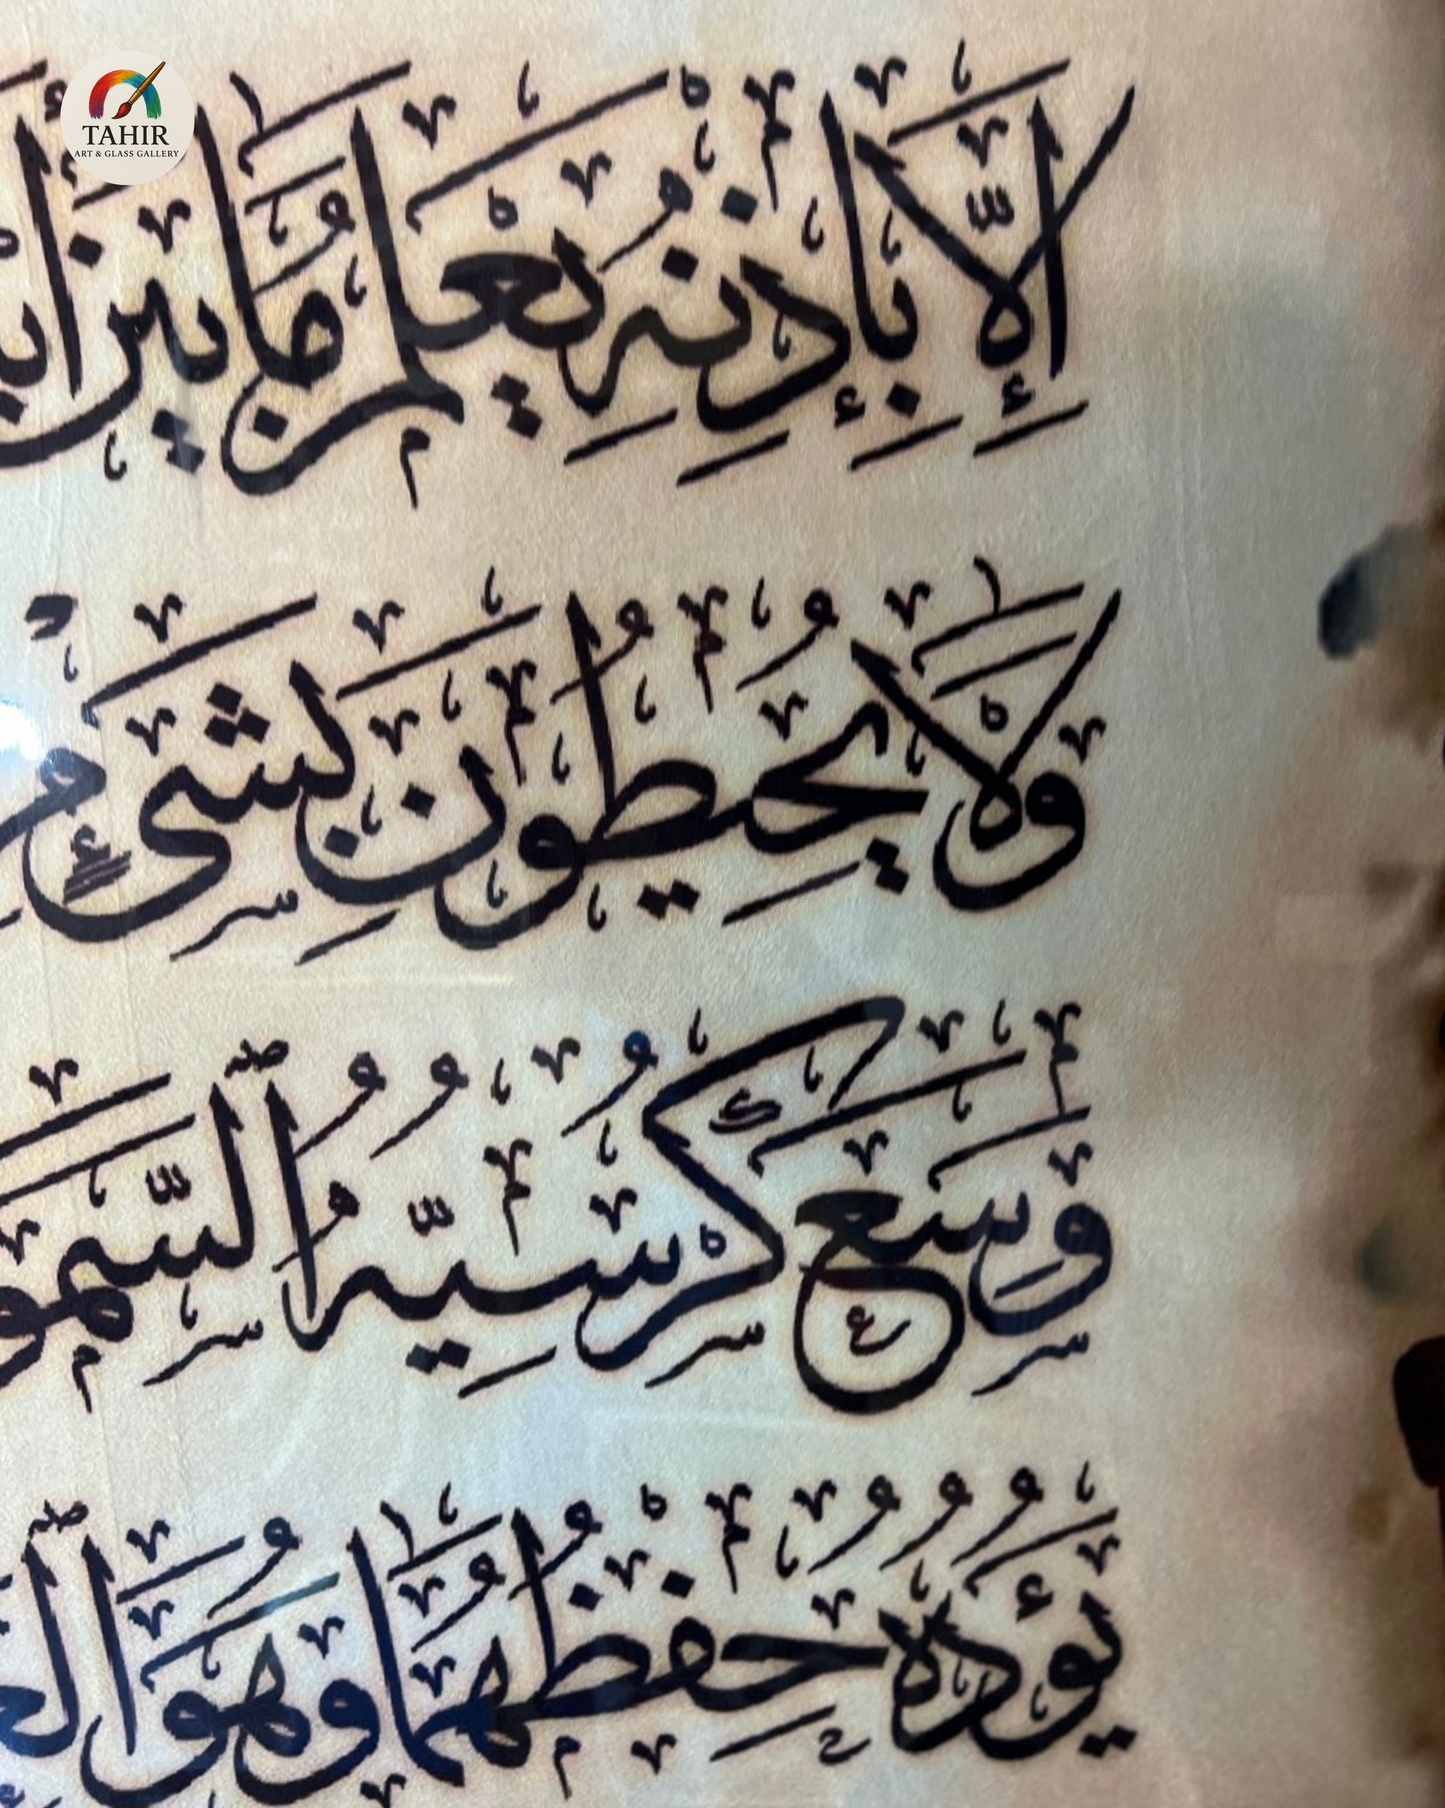 TAHIR
ART & GLASS GALLERY
إِلَّا بِإِذْنِهِ يَعْلَمُ مَا بَيْنَ
وَلَا يُحِيطُونَ بِشَىْءٍ
وَسِعَ كُرْسِيُّهُ ٱلسَّمَو
يَؤُدُهُ حِفْظُهُمَا وَهُوَ ٱلْعَ